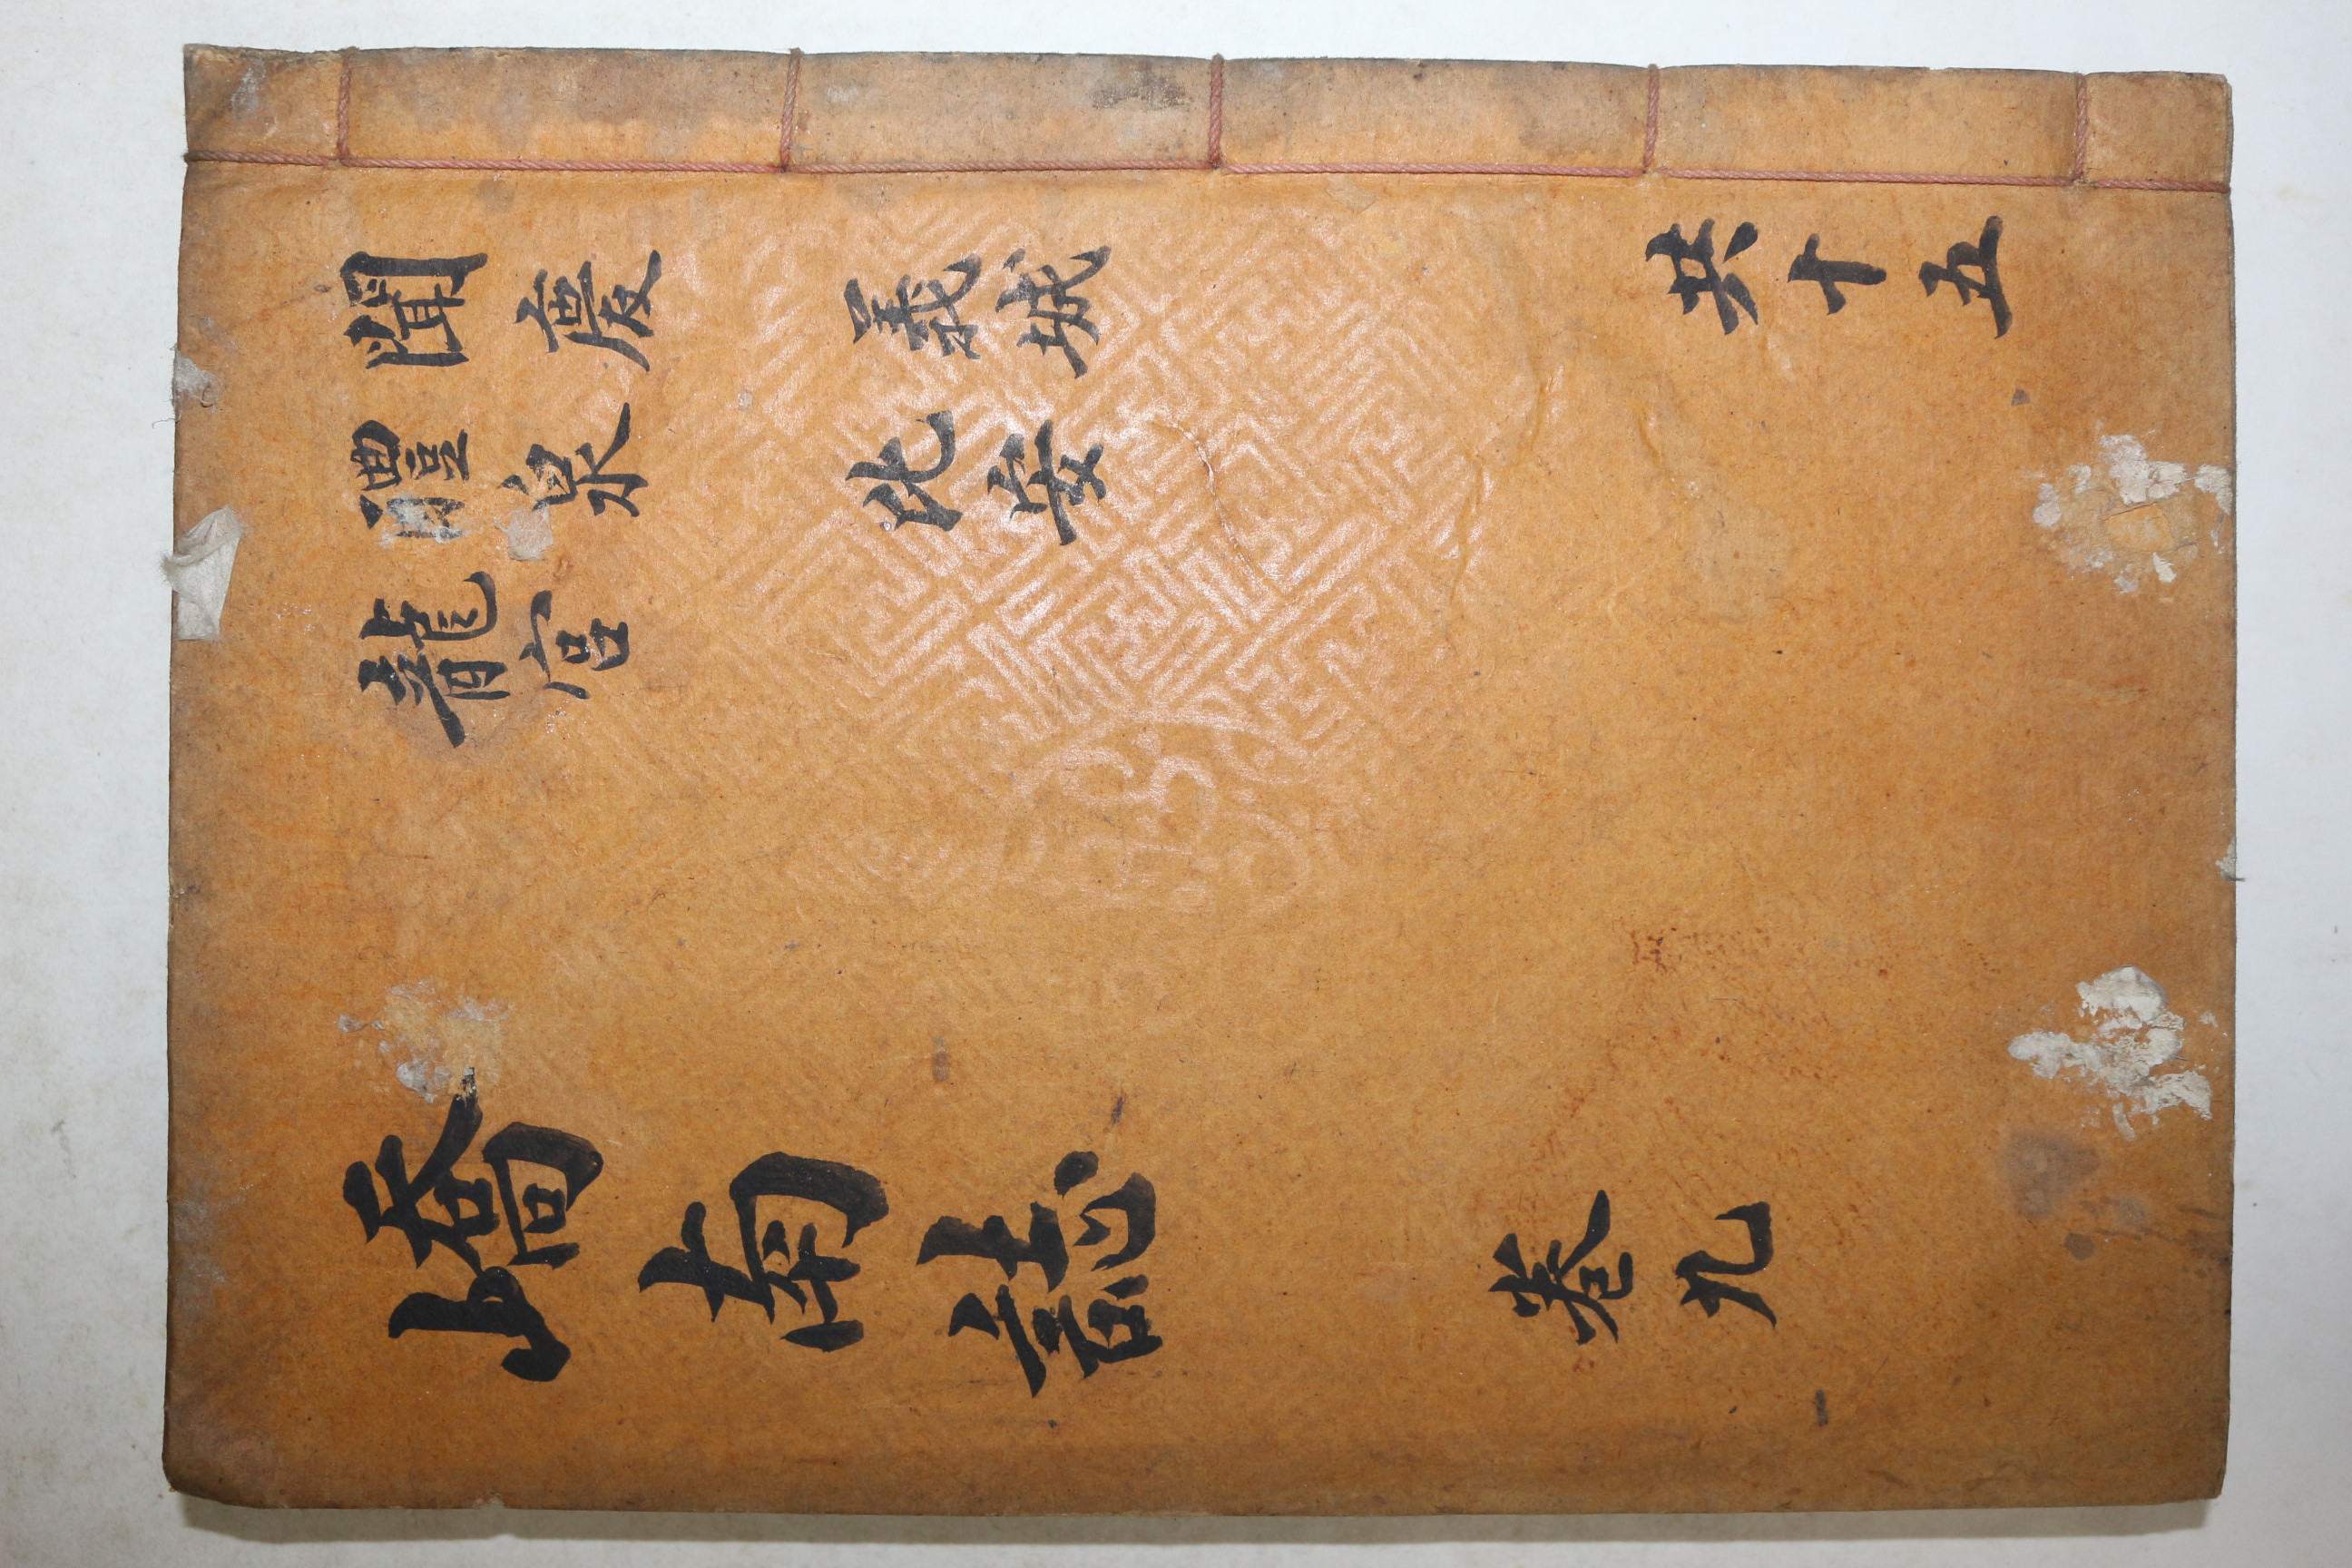 聞慶 義城
醴泉 比安
龍宮
共十五
嶠南誌 卷九